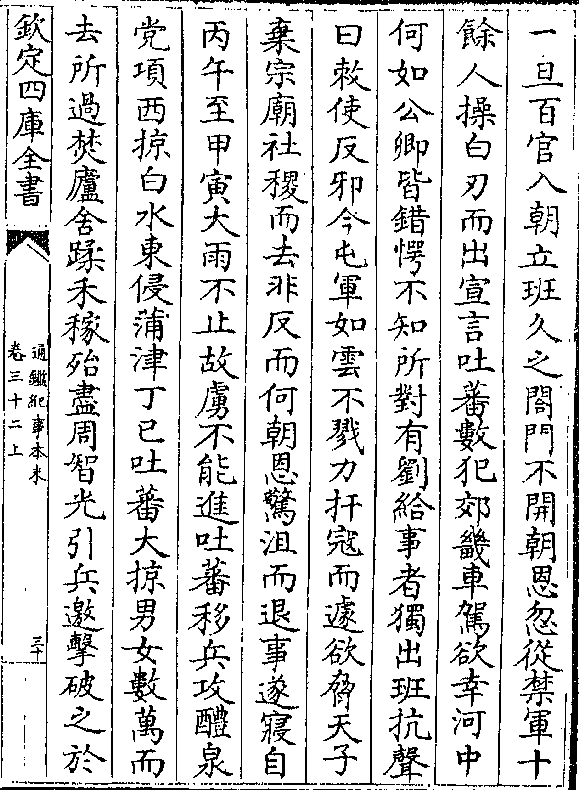 一旦百官入朝立班久之閤門不開朝恩忽從禁軍十
餘人操白刃而出宣言吐蕃數犯郊畿車駕欲幸河中
何如公卿皆錯愕不知所對有劉給事者獨出班抗聲
曰敕使反邪今屯軍如雲不戮力扞寇而遽欲脅天子
棄宗廟社稷而去非反而何朝恩驚沮而退事遂寢自
丙午至甲寅大雨不止故虜不能進吐蕃移兵攻醴泉
党項西掠白水東侵蒲津丁巳吐蕃大掠男女數萬而
去所過焚廬舍蹂禾稼殆盡周智光引兵邀擊破之於
欽定四庫全書
通鑑紀事本末
卷三十二上
三十